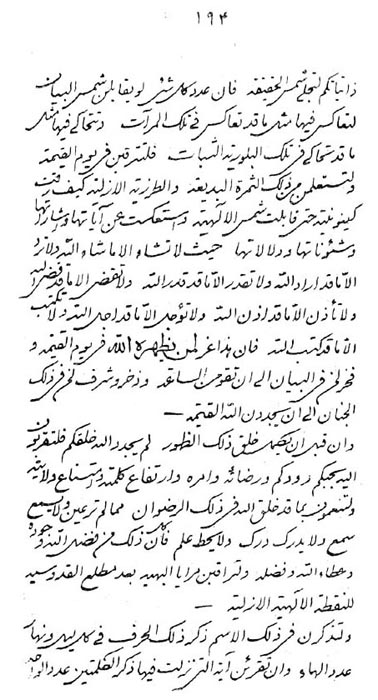 ۱۹۴
ذاتیاتکم لتجلی شمس الحقیقة فان عدد کل شیٔ لو یقابلن شمس البیان
لتعاکس فیها مثل ما قد تعاکس فی تلک المرآت و تتحاکی فیها مثل
ما قد تتحاکی فی تلک البلوریة الثبات فلترقبن فی یوم القیمة
و لتستعلمن من ذلک الثمرة البدیعة و الطرزیة الازلیة کیف رقت
کینونیته حتی قابلت شمس الالهیة و استعکست عن آیاتها و اشاراتها
و شئوناتها و دلالاتها حیث لا تشاء الا ما شاء الله و لا ترد
الا ما قد اراد الله و لا تقدر الا ما قد قدر الله و لا تقضی الا ما قد قضی الله
و لا تأذن الا ما قد اذن الله و لا تؤجل الا ما قد اجل الله و لا تکتب
الا ما قد کتب الله فان هذا عز لمن یظهره الله فی یوم القیمة و
فخر لمن فی البیان الی ان تقومن الساعة و ذخر و شرف لمن فی ذلک
الجنان الی ان یجددن الله القیمة —
و ان قبل ان یکمل خلق ذلک الظهور لم یجدد الله خلقکم فلتقربون
الیه بحبکم و رضائه و امره و ارتفاع کلمته و امتناع ولایته
و لتنعمون بما قد خلق الله فی ذلک الرضوان مما لم تر عین و لا یسمع
سمع و لا یدرک درک و لا یحط علم فان ذلک من فضل الله وجوده
و عطاء الله و فضله و لتراقبن مرایا البهیة بعد مطلع القدوسیة
للنقطة الالهیة الازلیة —
و لتذکرن فی ذلک الاسم ذکر ذلک الحرف فی کل لیل و نهار
عدد الهاء و ان تقرئن آیة التی نزلت فیها ذکر الکلمتین عدد الواحد